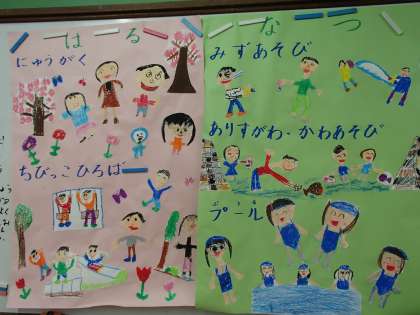 はる
にゅうがく
ちびっこひろば
なつ
みずあそび
ありすがわ・かわあそび
プール